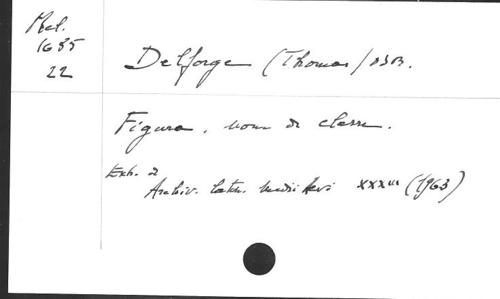 Mel.
1635
22
Delforge (Thomas) OSB.
Figura, nom de classe.
Extr. d
Archiv. latin. medii Aevi XXXIII (1963)